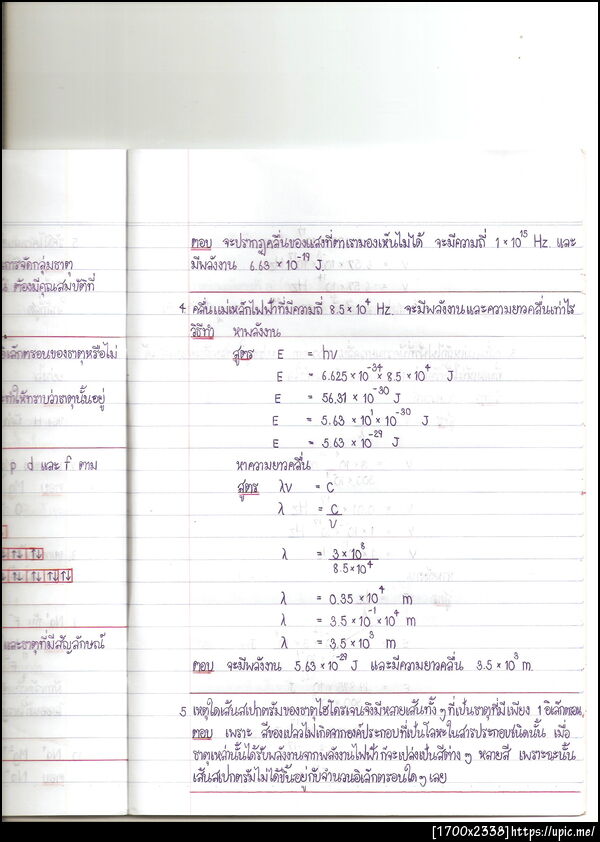 การจัดกลุ่มธาตุ
ต้องมีคุณสมบัติที่
อิเล็กตรอนของธาตุหรือไม่
ทำให้ทราบว่าธาตุนั้นอยู่
p d และ f ตาม
และธาตุที่มีสัญลักษณ์
ตอบ จะปรากฏคลื่นของแสงที่ตาเรามองเห็นไม่ได้ จะมีความถี่ 1 × 10¹⁵ Hz. และ
มีพลังงาน 6.63 × 10⁻¹⁹ J.
4. คลื่นแม่เหล็กไฟฟ้าที่มีความถี่ 8.5 × 10⁴ Hz. จะมีพลังงานและความยาวคลื่นเท่าไร
วิธีทำ หาพลังงาน
สูตร E = hν
E = 6.625 × 10⁻³⁴ × 8.5 × 10⁴ J
E = 56.31 × 10⁻³⁰ J
E = 5.63 × 10¹ × 10⁻³⁰ J
E = 5.63 × 10⁻²⁹ J
หาความยาวคลื่น
สูตร λν = C
λ = C/ν
λ = 3 × 10⁸ / 8.5 × 10⁴
λ = 0.35 × 10⁴ m
λ = 3.5 × 10⁻¹ × 10⁴ m
λ = 3.5 × 10³ m
ตอบ จะมีพลังงาน 5.63 × 10⁻²⁹ J และมีความยาวคลื่น 3.5 × 10³ m.
5. เหตุใดเส้นสเปกตรัมของธาตุไฮโดรเจนจึงมีหลายเส้นทั้ง ๆ ที่เป็นธาตุที่มีเพียง 1 อิเล็กตรอน
ตอบ เพราะ สีของเปลวไฟเกิดจากองค์ประกอบที่เป็นโลหะในสารประกอบชนิดนั้น เมื่อ
ธาตุเหล่านั้นได้รับพลังงานจากพลังงานไฟฟ้าก็จะเปล่งเป็นสีต่าง ๆ หลายสี เพราะฉะนั้น
เส้นสเปกตรัมไม่ได้ขึ้นอยู่กับจำนวนอิเล็กตรอนใด ๆ เลย
[1700x2338]https://upic.me/